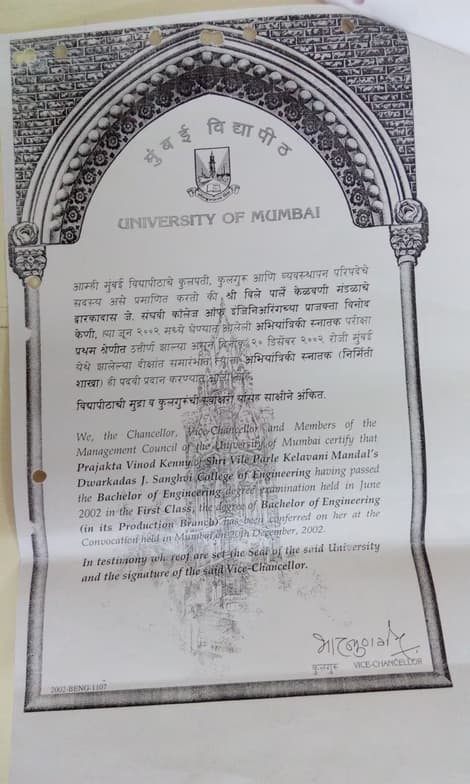 मुंबई विद्यापीठ
UNIVERSITY OF MUMBAI
आम्ही मुंबई विद्यापीठाचे कुलपती, कुलगुरू आणि व्यवस्थापन परिषदेचे
सदस्य असे प्रमाणित करतो की श्री विले पार्ले केळवणी मंडळाचे
द्वारकादास जे. संघवी कॉलेज ऑफ इंजिनिअरिंगच्या प्राजक्ता विनोद
केणी, ह्या जून २००२ मध्ये घेण्यात आलेली अभियांत्रिकी स्नातक परीक्षा
प्रथम श्रेणीत उत्तीर्ण झाल्या असून दिनांक २० डिसेंबर २००२ रोजी मुंबई
येथे झालेल्या दीक्षांत समारंभात त्यांना अभियांत्रिकी स्नातक (निर्मिती
शाखा) ही पदवी प्रदान करण्यात आली आहे.
विद्यापीठाची मुद्रा व कुलगुरूंची स्वाक्षरी यांसह साक्षीने अंकित.
We, the Chancellor, Vice-Chancellor and Members of the
Management Council of the University of Mumbai certify that
Prajakta Vinod Kenny of Shri Vile Parle Kelavani Mandal's
Dwarkadas J. Sanghvi College of Engineering having passed
the Bachelor of Engineering degree examination held in June
2002 in the First Class, the degree of Bachelor of Engineering
(in its Production Branch) has been conferred on her at the
Convocation held in Mumbai on 20th December, 2002.
In testimony whereof are set the Seal of the said University
and the signature of the said Vice-Chancellor.
कुलगुरू VICE-CHANCELLOR
2002-BENG-1107